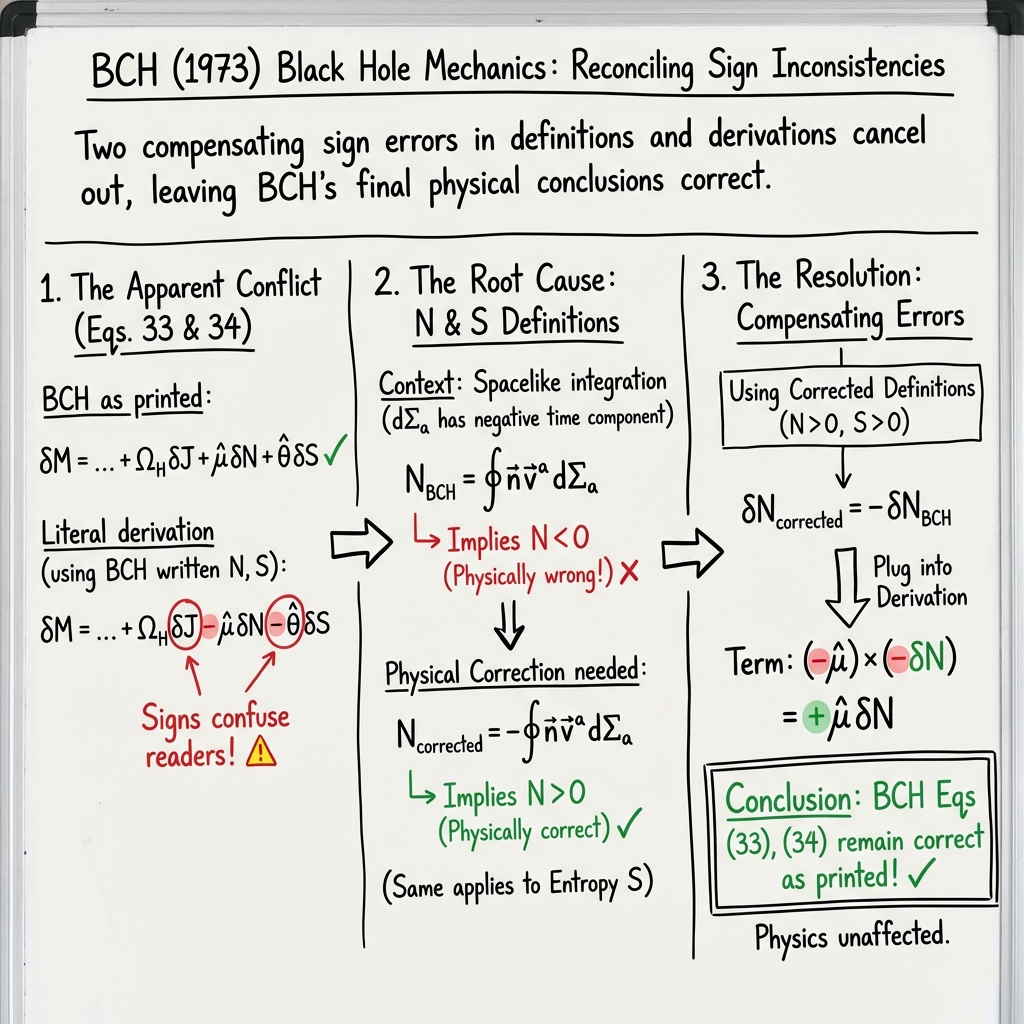 BCH (1973) Black Hole Mechanics: Reconciling Sign Inconsistencies
Two compensating sign errors in definitions and derivations cancel
out, leaving BCH's final physical conclusions correct.
1. The Apparent Conflict
(Eqs. 33 & 34)
BCH as printed:
δM = ... + Ω_HδJ + μ̂δN + θ̂δS ✓
Literal derivation
(using BCH written N, S):
δM = ... + Ω_HδJ - μ̂δN - θ̂δS
Signs confuse
readers! ⚠
2. The Root Cause:
N & S Definitions
Context: Spacelike integration
(dΣ_a has negative time component)
N_BCH = ∮n⃗v⃗^a dΣ_a
↳ Implies N<0
(Physically wrong!) ✗
Physical Correction needed:
N_corrected = -∮n⃗v⃗^a dΣ_a
↳ Implies N>0
(Physically correct) ✓
(Same applies to Entropy S)
3. The Resolution:
Compensating Errors
Using Corrected Definitions
(N>0, S>0)
δN_corrected = -δN_BCH
Plug into
Derivation
Term: (-μ̂) × (-δN)
= + μ̂δN
Conclusion: BCH Eqs
(33), (34) remain correct
as printed! ✓
Physics unaffected.